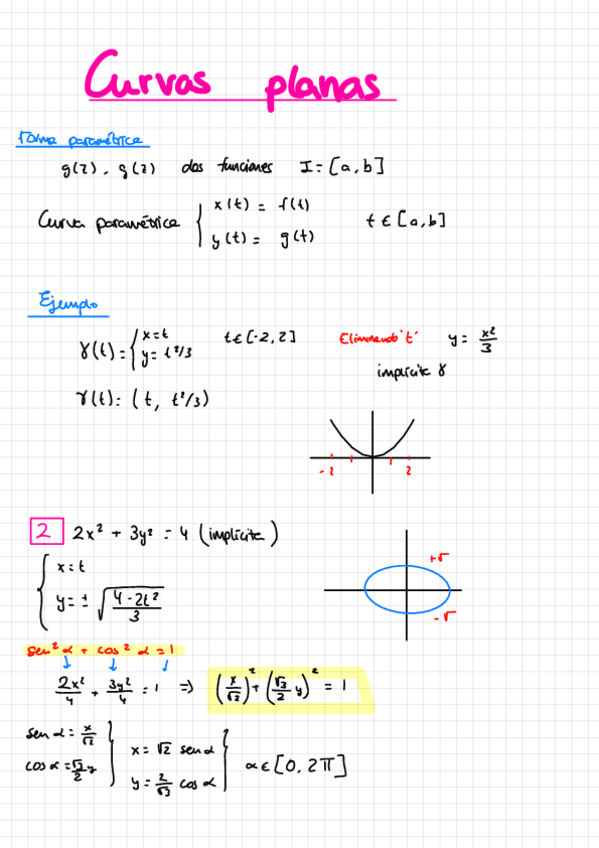 Curvas planas
Forma paramétrica
g(z), g(z) dos funciones I = [a, b]
Curva paramétrica { x(t) = f(t) t ∈ [a, b]
y(t) = g(t)
Ejemplo
γ(t) = { x = t t ∈ [-2, 2] Eliminando "t" y = x²/3
y = t²/3
implícite γ
γ(t): (t, t²/3)
-2 2
2 2x² + 3y² = 4 (implícite)
{ x = t +√
y = ± √((4 - 2t²)/3) -√
sen² α + cos² α = 1
2x²/4 + 3y²/4 = 1 => (x/√2)² + (√3/2 y)² = 1
sen α = x/√2 } x = √2 sen α } α ∈ [0, 2π]
cos α = √3/2 y } y = 2/√3 cos α }